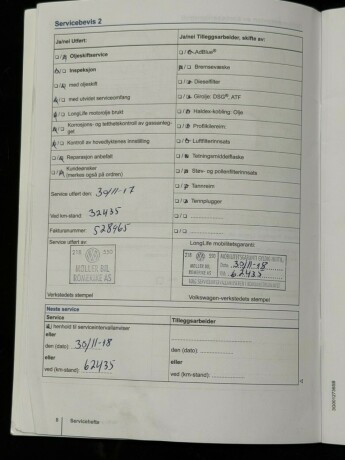 Servicebevis 2
Ja/nei Utført:
Ja/nei Tilleggsarbeider, skifte av:
Oljeskiftservice
AdBlue®
Inspeksjon
Bremsevæske
med oljeskift
Dieselfilter
med utvidet serviceomfang
Girolje: DSG®, ATF
LongLife motorolje brukt
Haldex-kobling: Olje
Korrosjons- og tetthetskontroll av gassanlegget
Profilkilerem:
Kontroll av hovedlyktenes innstilling
Luftfilterinnsats
Reparasjon anbefalt
Tetningsmiddelflaske
Kundeønsker
(merkes også på ordren)
Støv- og pollenfilterinnsats
Service utført den: 30/11-17
Tannreim
Tennplugger
Ved km-stand: 32435
Fakturanummer: 528965
Service utført av:
LongLife mobilitetsgaranti:
MØLLER BIL
ROMERIKE AS
30/11-18
62435
Verkstedets stempel
Volkswagen-verkstedets stempel
Neste service
Service
Tilleggsarbeider
I henhold til serviceintervallmeter
eller
den (dato): 30/11-18
den (dato):
eller
eller
ved (km-stand): 62435
ved (km-stand):
8
Servicehefte